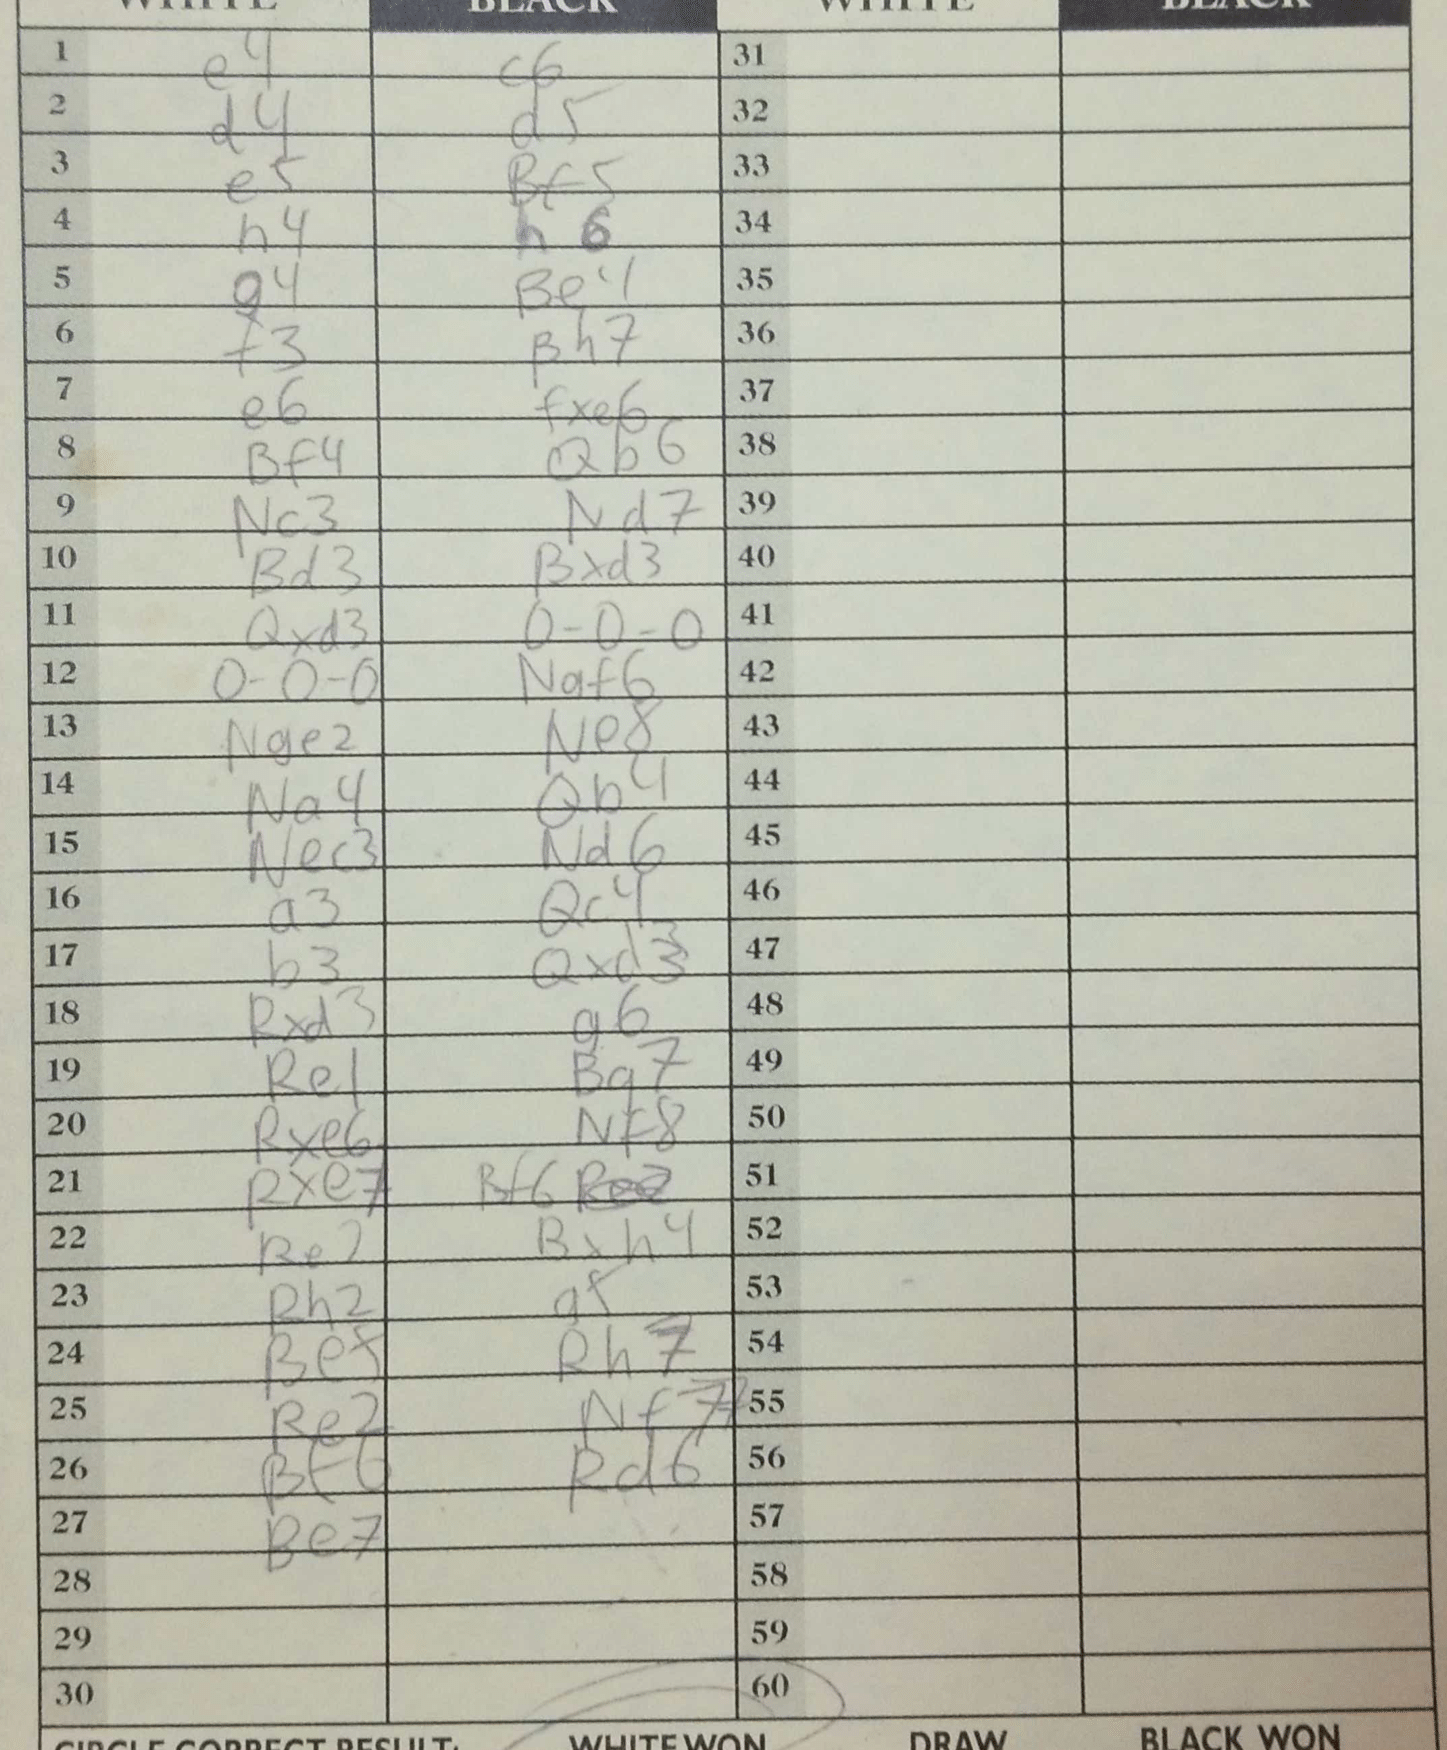 WHITE BLACK WHITE BLACK
1 e4 c6 31
2 d4 d5 32
3 e5 Bf5 33
4 h4 h6 34
5 g4 Be4 35
6 f3 Bh7 36
7 e6 fxe6 37
8 Bf4 Qb6 38
9 Nc3 Nd7 39
10 Bd3 Bxd3 40
11 Qxd3 0-0-0 41
12 0-0-0 Ngf6 42
13 Nge2 Ne8 43
14 Na4 Qb4 44
15 Nec3 Nd6 45
16 a3 Qc4 46
17 b3 Qxd3 47
18 Rxd3 g6 48
19 Re1 Bg7 49
20 Rxe6 Nf8 50
21 Rxe7 Bf6 51
22 Re2 Bxh4 52
23 Rh2 g5 53
24 Be5 Rh7 54
25 Re2 Nf7 55
26 Bf6 Rd6 56
27 Be7 57
28 58
29 59
30 60
CIRCLE CORRECT RESULT: WHITE WON DRAW BLACK WON